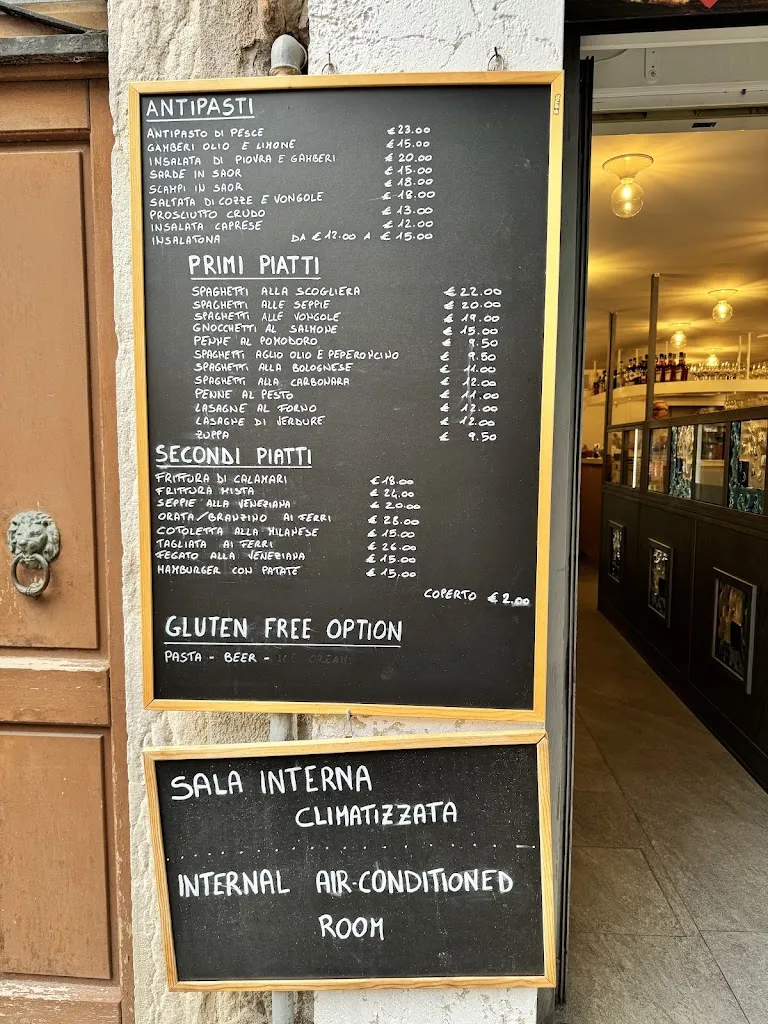 ANTIPASTI
ANTIPASTO DI PESCE € 23.00
GAMBERI OLIO E LIMONE € 15.00
INSALATA DI PIOVRA E GAMBERI € 20.00
SARDE IN SAOR € 15.00
SCAMPI IN SAOR € 18.00
SALTATA DI COZZE E VONGOLE € 18.00
PROSCIUTTO CRUDO € 13.00
INSALATA CAPRESE € 12.00
INSALATONA DA € 12.00 A € 15.00
PRIMI PIATTI
SPAGHETTI ALLA SCOGLIERA € 22.00
SPAGHETTI ALLE SEPPIE € 20.00
SPAGHETTI ALLE VONGOLE € 19.00
GNOCCHETTI AL SALMONE € 15.00
PENNE AL POMODORO € 9.50
SPAGHETTI AGLIO OLIO E PEPERONCINO € 9.50
SPAGHETTI ALLA BOLOGNESE € 11.00
SPAGHETTI ALLA CARBONARA € 12.00
PENNE AL PESTO € 11.00
LASAGNE AL FORNO € 12.00
LASAGNE DI VERDURE € 12.00
ZUPPA € 9.50
SECONDI PIATTI
FRITTURA DI CALAMARI € 18.00
FRITTURA MISTA € 24.00
SEPPIE ALLA VENEZIANA € 20.00
ORATA/BRANZINO AI FERRI € 28.00
COTOLETTA ALLA MILANESE € 15.00
TAGLIATA AI FERRI € 26.00
FEGATO ALLA VENEZIANA € 15.00
HAMBURGER CON PATATE € 15.00
COPERTO € 2.00
GLUTEN FREE OPTION
PASTA - BEER - ICE CREAM
SALA INTERNA
CLIMATIZZATA
INTERNAL AIR-CONDITIONED
ROOM